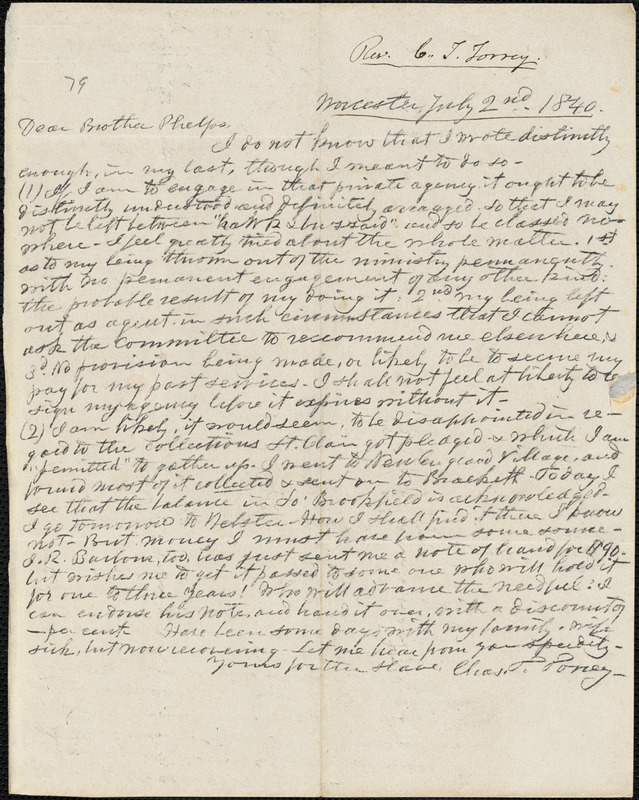 Rev. C. T. Torrey.
79
Worcester, July 2nd. 1840.
Dear Brother Phelps,
I do not know that I wrote distinctly
enough, in my last, though I meant to do so-
(1) If I am to engage in that private agency it ought to be
distinctly understood and definitely arranged. so that I may
not be left between "hawk & buzzard" and so be classed no-
where - I feel greatly tried about the whole matter. 1st
as to my being thrown out of the ministry permanently
with no permanent engagement of any other kind:
the probable result of my doing it: 2nd my being left
out as agent in such circumstances that I cannot
ask the Committee to reccommend me elsewhere, &
3d. No provision being made, or likely to be to secure my
pay for my past services - I shall not feel at liberty to re-
sign my agency before it expires without it -
(2) I am likely, it would seem, to be disappointed in re-
gard to the collections St. Clair got pledged & which I am
"permitted" to gather up. I went to New England Village and
found most of it collected & sent on to Brackett. Today I
see that the balance in So. Brookfield is acknowledged.
I go tomorrow to Webster - How I shall find it there I know
not - But money I must have from some source -
J. R. Barbour, too, has just sent me a note of hand for $90.-
but wishes me to get it passed to some one who will hold it
for one to three years! Who will advance the needful? I
can endorse his note, and hand it over, with a discount of
- per cent. Have been some days with my family - wife
sick, but now recovering - Let me hear from you speedily-
Yours for the slave Chas. T. Torrey -